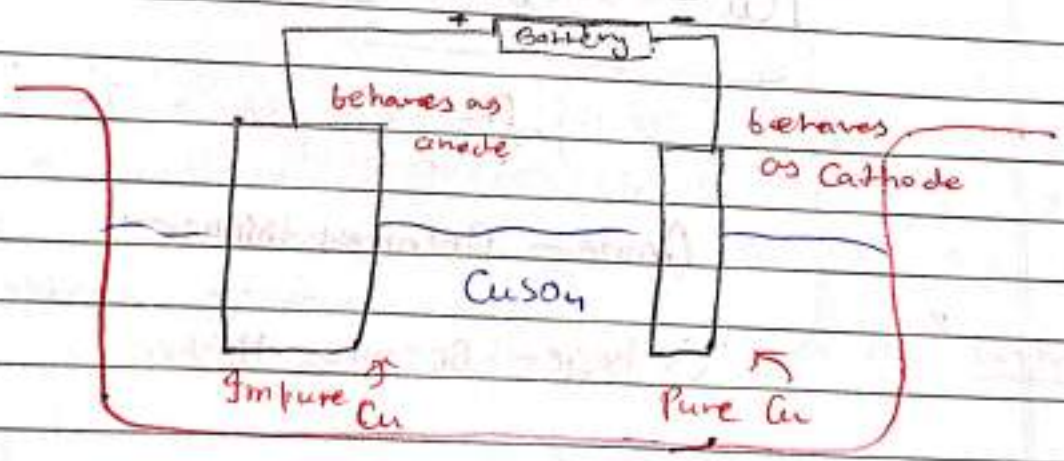 + Battery -
behaves as
anode
behaves
as Cathode
CuSO4
Impure
Cu
Pure Cu